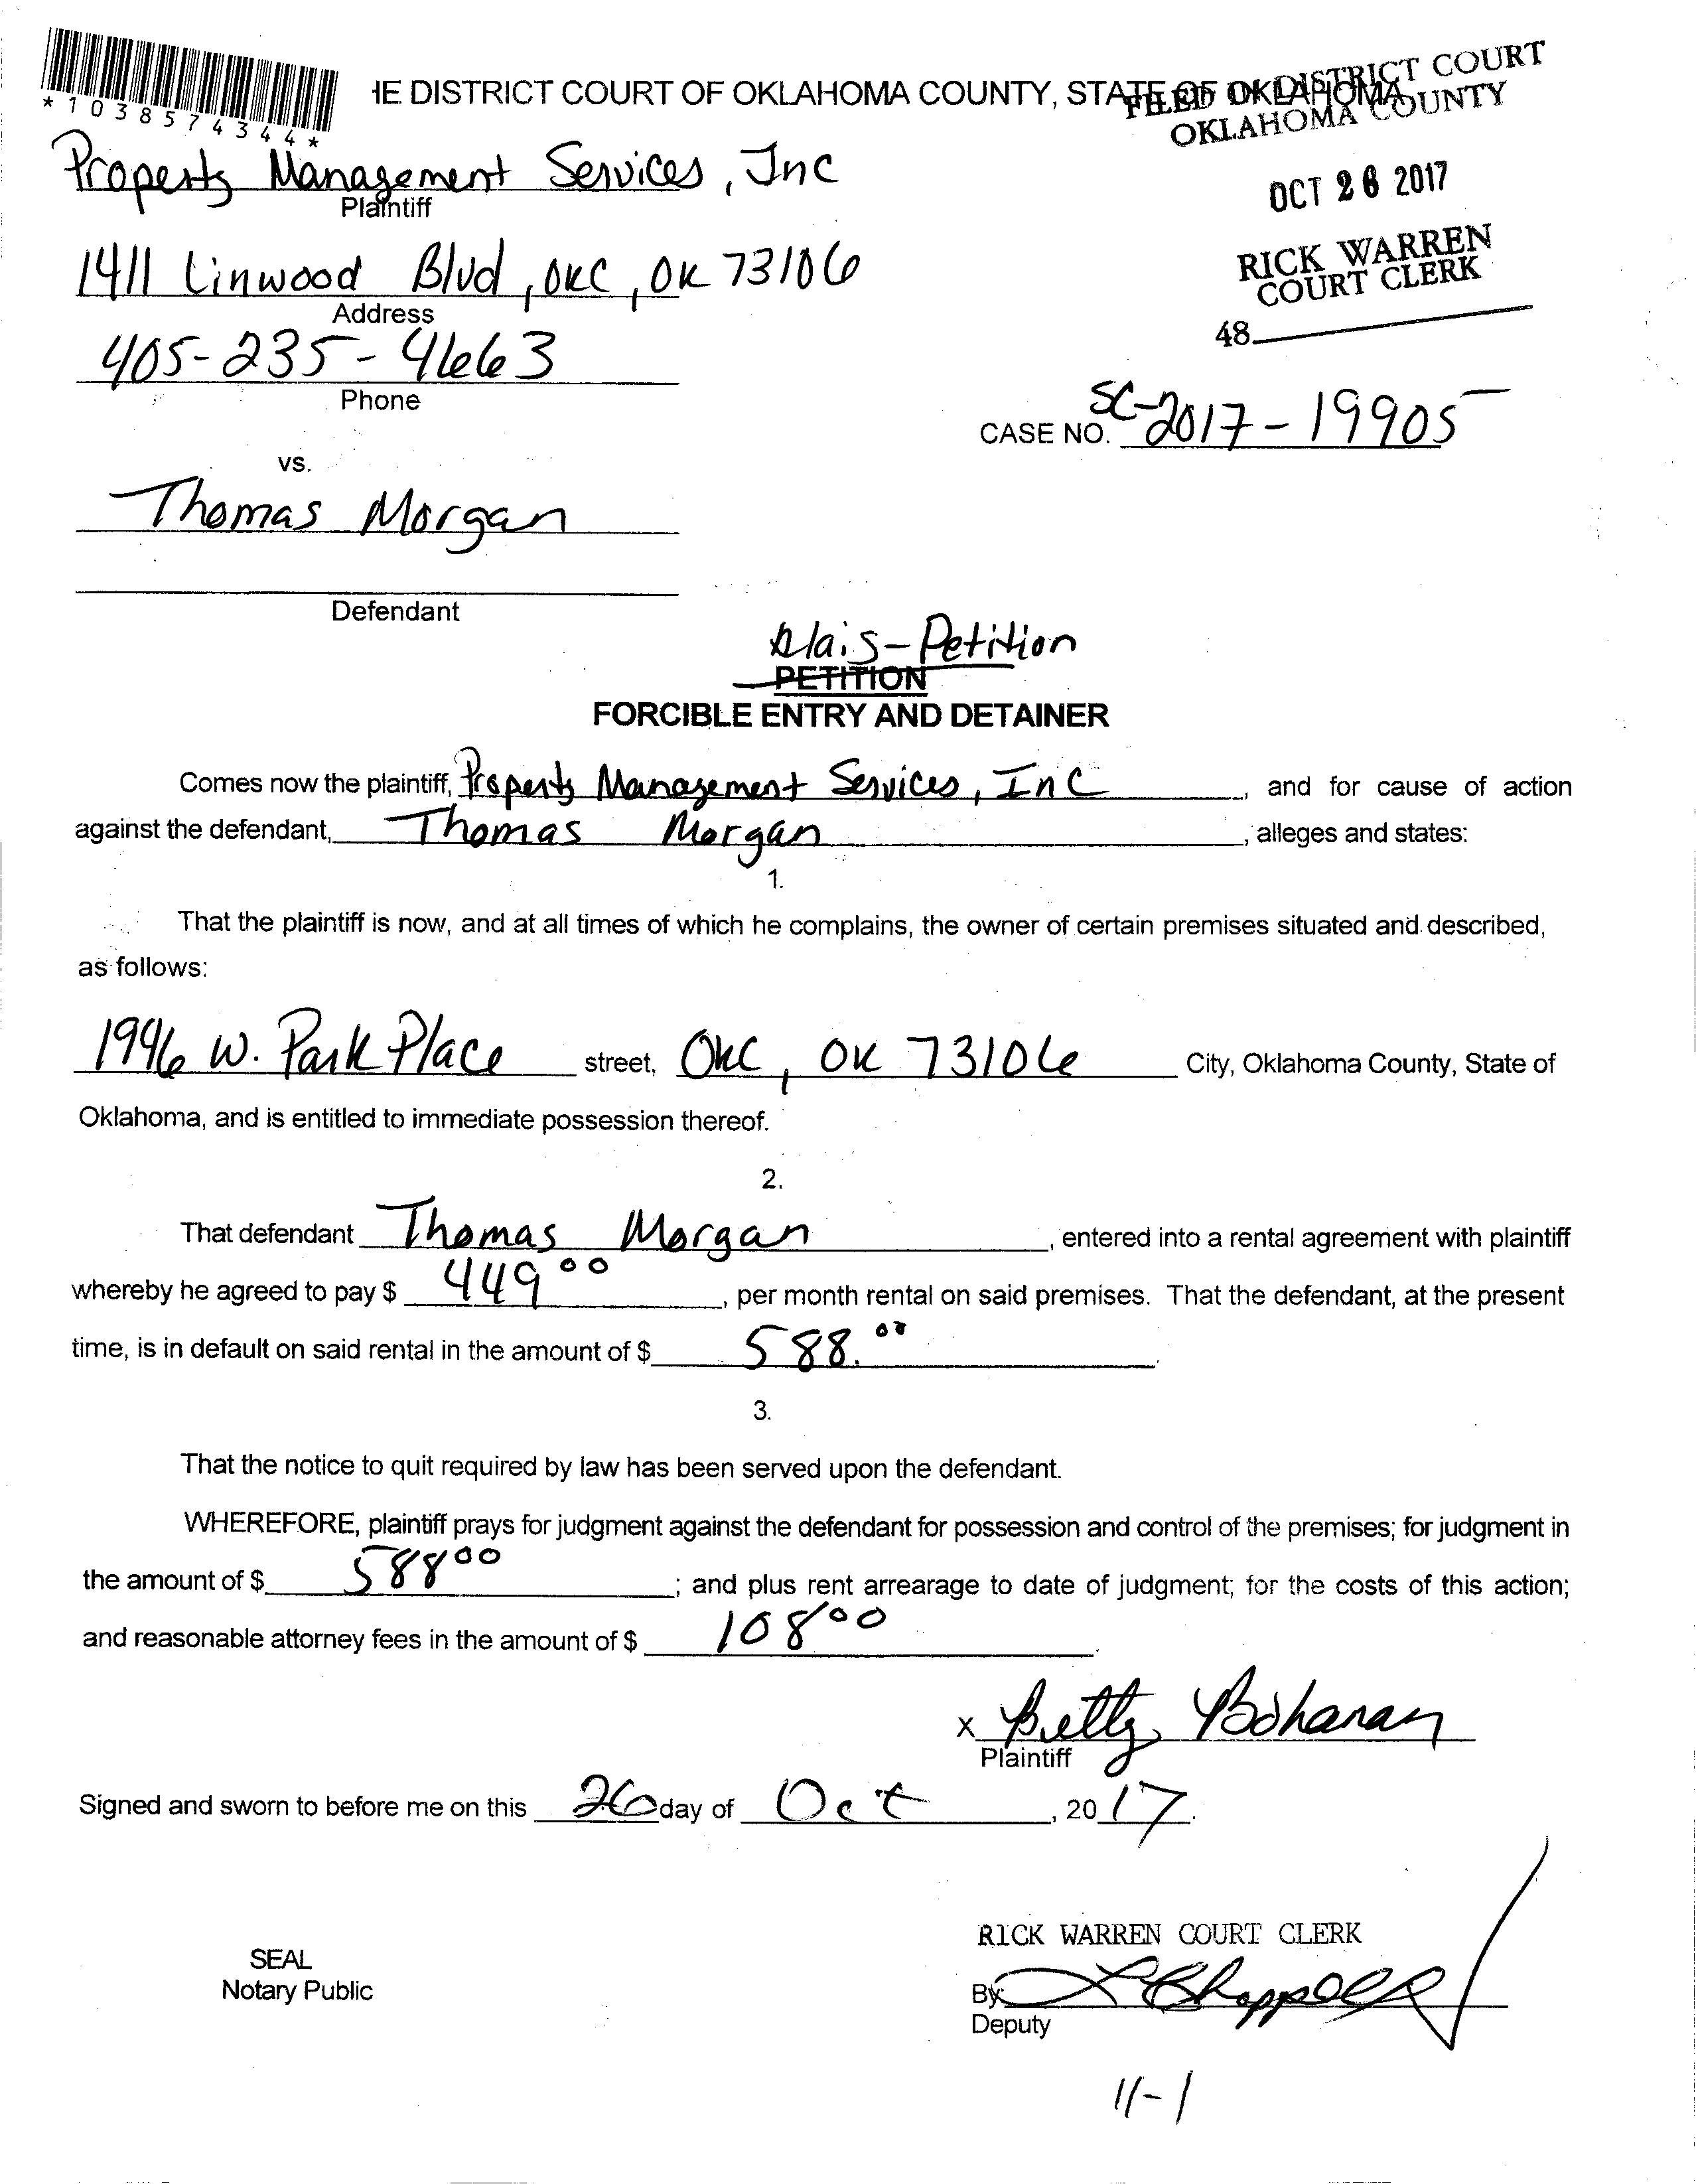 *1038574344*
HE DISTRICT COURT OF OKLAHOMA COUNTY, STATE OF OKLAHOMA
FILED IN DISTRICT COURT
OKLAHOMA COUNTY
OCT 26 2017
RICK WARREN
COURT CLERK
48
Property Management Services, Inc
Plaintiff
1411 Linwood Blvd, OKC, OK 73106
Address
405-235-4663
Phone
CASE NO. SC-2017-19905
vs.
Thomas Morgan
Defendant
Petition
PETITION
FORCIBLE ENTRY AND DETAINER
Comes now the plaintiff, Property Management Services, Inc, and for cause of action
against the defendant, Thomas Morgan, alleges and states:
1.
That the plaintiff is now, and at all times of which he complains, the owner of certain premises situated and described,
as follows:
1946 W. Park Place street, OKC, OK 73106 City, Oklahoma County, State of
Oklahoma, and is entitled to immediate possession thereof.
2.
That defendant Thomas Morgan, entered into a rental agreement with plaintiff
whereby he agreed to pay $ 449 00, per month rental on said premises. That the defendant, at the present
time, is in default on said rental in the amount of $ 588.00.
3.
That the notice to quit required by law has been served upon the defendant.
WHEREFORE, plaintiff prays for judgment against the defendant for possession and control of the premises; for judgment in
the amount of $ 588 00; and plus rent arrearage to date of judgment; for the costs of this action;
and reasonable attorney fees in the amount of $ 108 00.
x Betty Bohanan
Plaintiff
Signed and sworn to before me on this 26 day of Oct, 2017.
RICK WARREN COURT CLERK
SEAL
Notary Public
By: L Chappell
Deputy
11-1